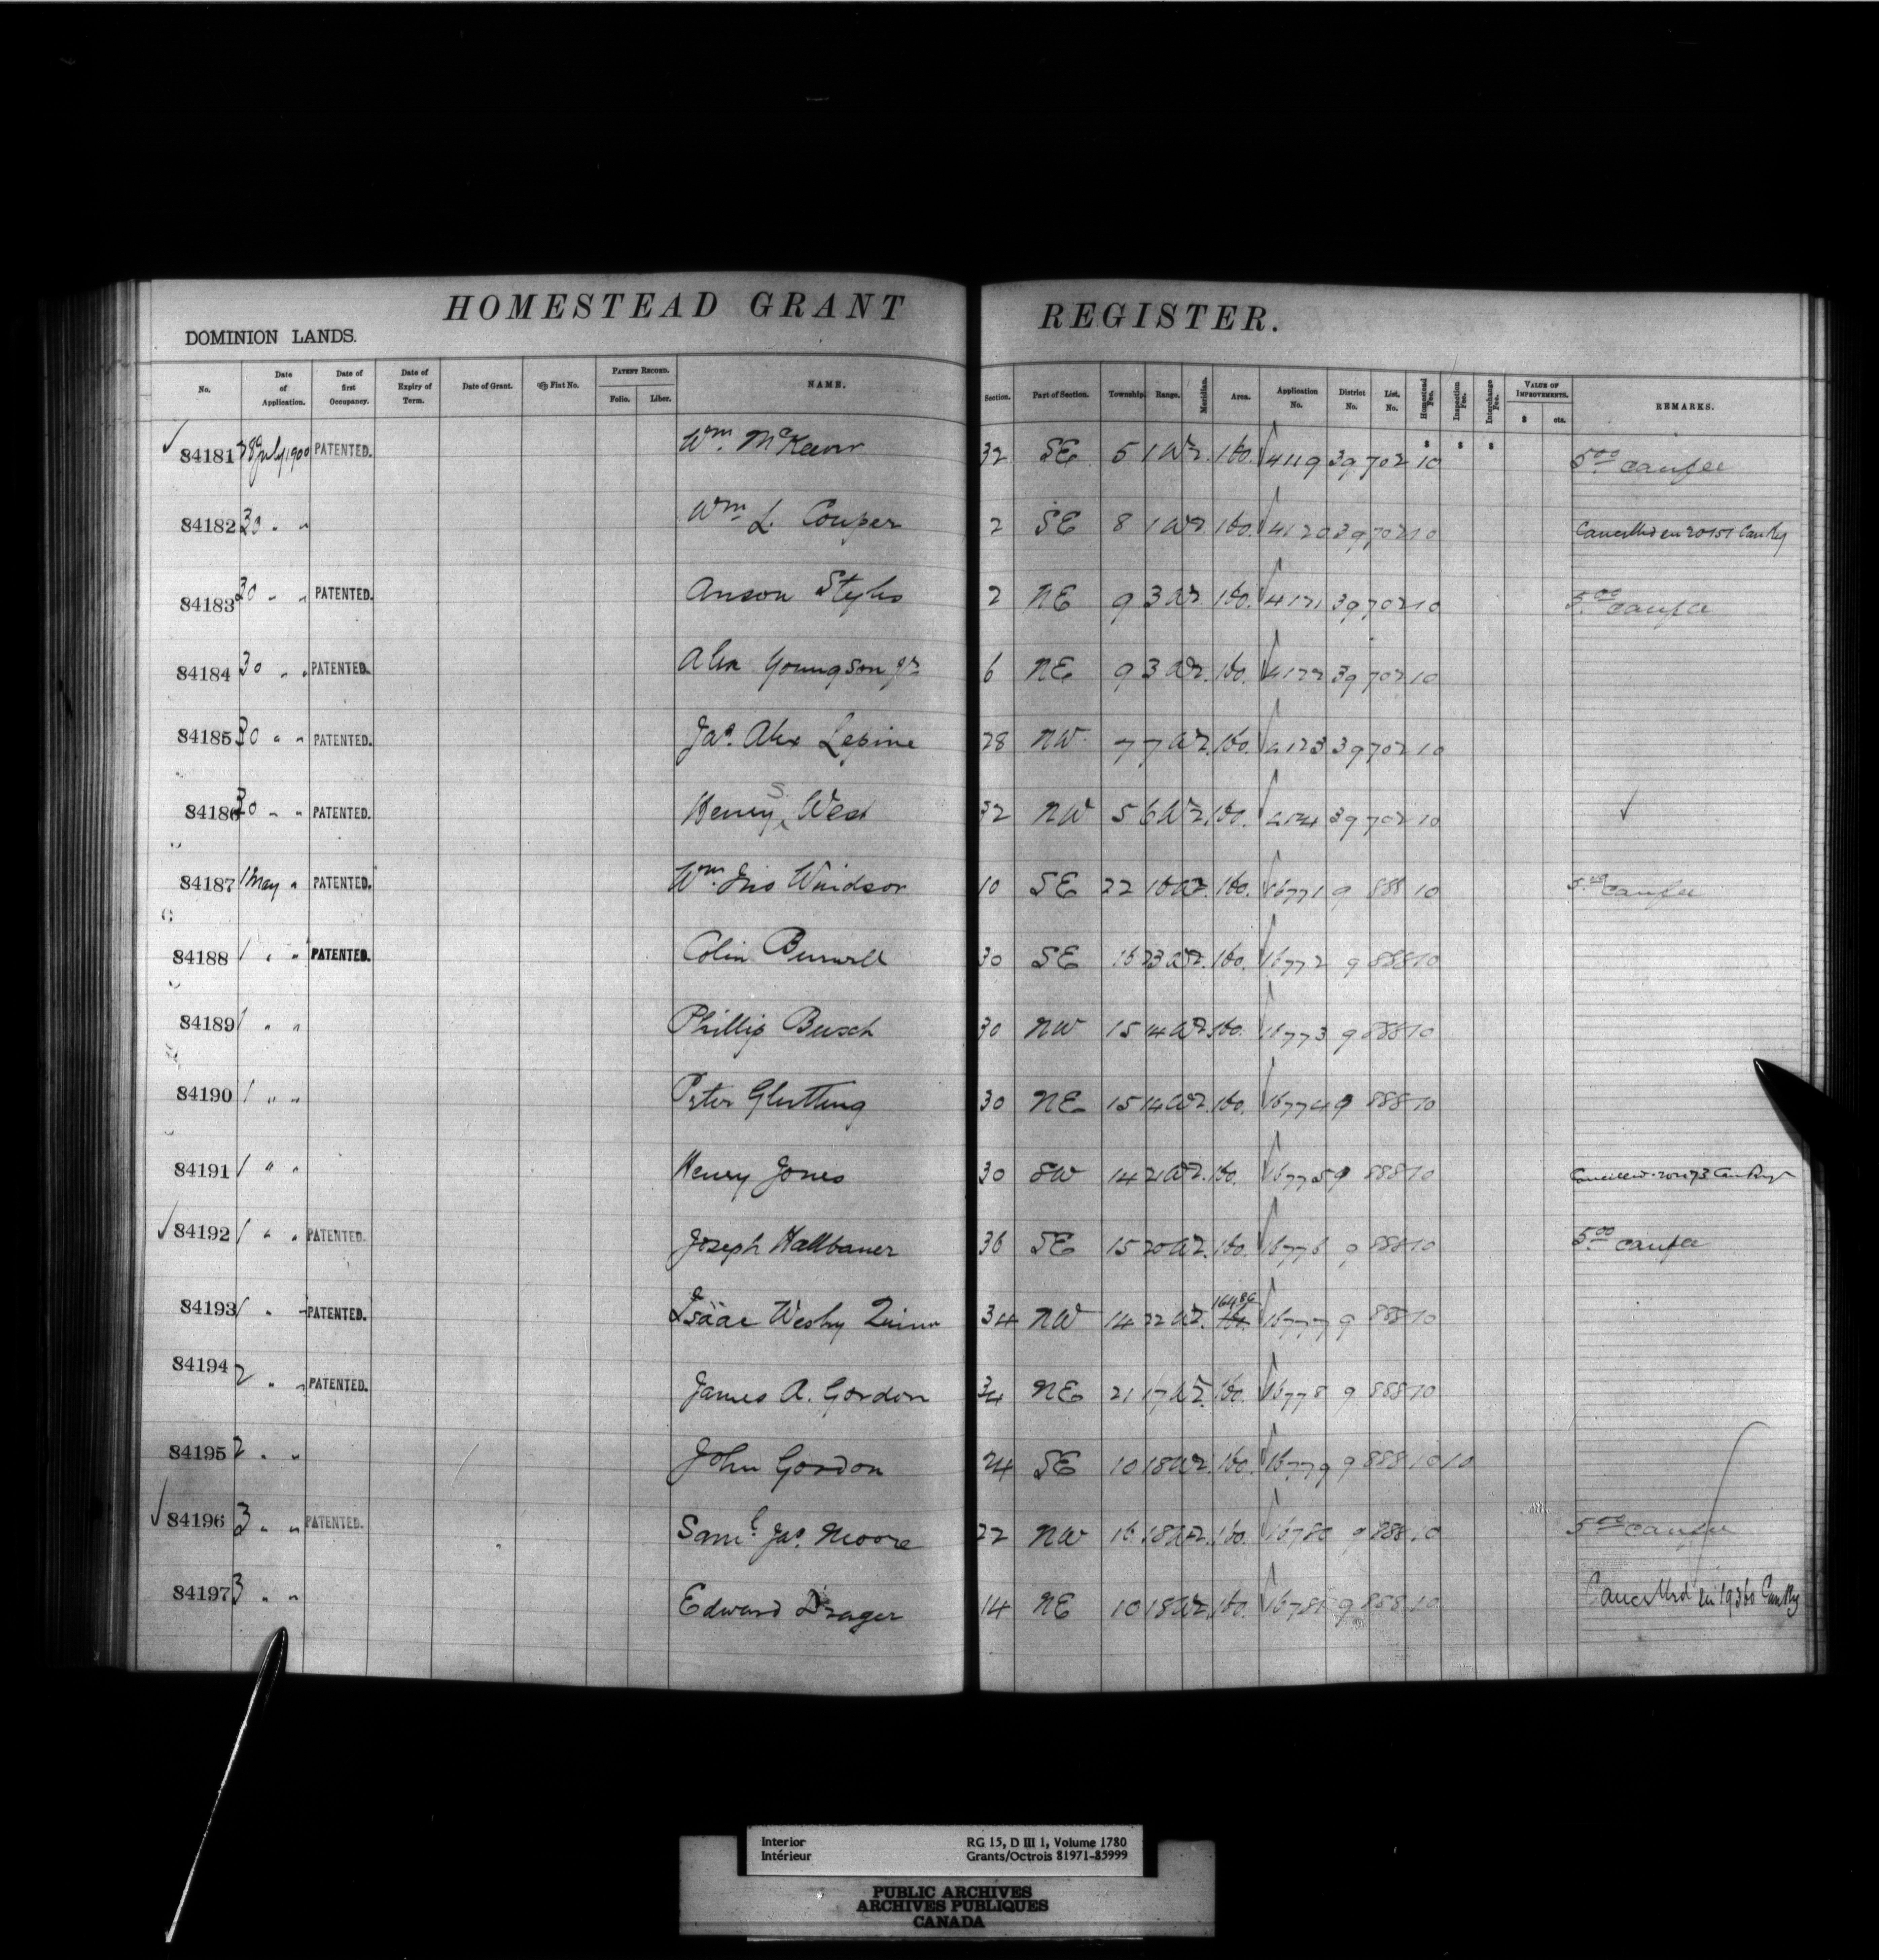 HOMESTEAD GRANT REGISTER.
DOMINION LANDS.
No. Date of Application. Date of first Occupancy. Date of Expiry of Term. Date of Grant. Fiat No. PATENT RECORD. Folio. Liber. NAME. Section. Part of Section. Township. Range. Meridian. Area. Application No. District No. List. No. Homestead Fee. Inspection Fee. Interchange Fee. VALUE OF IMPROVEMENTS. $ cts. REMARKS.
84181 28 July 1900 PATENTED. Wm. McKeown 32 SE 5 1 W2. 160. 4119 39 702 10 5.00 canfee
84182 30 " " Wm L. Couper 2 SE 8 1 W2. 160. 4120 39 702 10 Cancelled en 20151 Can Reg
84183 30 " " PATENTED. Anson Styles 2 NE 9 3 W2. 160. 4121 39 702 10 5.00 canfee
84184 30 " " PATENTED. Alex Youngson Jr 6 NE 9 3 W2. 160. 4122 39 702 10
84185 30 " " PATENTED. Jas. Alex Lepine 28 NW 7 7 W2. 160. 4123 39 702 10
84186 30 " " PATENTED. Henry S. West 32 NW 5 6 W2. 160. 4124 39 702 10 ✓
84187 1 May " PATENTED. Wm. Jno Windsor 10 SE 22 16 W2. 160. 16771 9 888 10 5.00 canfee
84188 1 " " PATENTED. Colin 30 SE 16 23 W2. 160. 16772 9 888 10
84189 1 " " Phillip Busch 30 NW 15 14 W2 160. 16773 9 888 10
84190 1 " " Peter Glutting 30 NE 15 14 W2. 160. 16774 9 888 10
84191 1 " " Henry Jones 30 SW 14 21 W2. 160. 16775 9 888 10 Cancelled Can Reg
84192 1 " " PATENTED. Joseph Hallbauer 36 SE 15 20 W2. 160. 16776 9 888 10 5.00 canfee
84193 1 " " PATENTED. Isaac Wesley Quinn 34 NW 14 22 W2. 164.86 160. 16777 9 888 10
84194 2 " " PATENTED. James A. Gordon 34 NE 21 17 W2. 160. 16778 9 888 10
84195 2 " " John Gordon 24 SE 10 18 W2. 160. 16779 9 888 10 10
84196 3 " " PATENTED. Saml. Jas. Moore 22 NW 16 18 W2. 160. 16780 9 888 10 5.00 canfee
84197 3 " " Edward Drager 14 NE 10 18 W2. 160. 16781 9 888 10 Cancelled en 19360 Can Reg
Interior RG 15, D III 1, Volume 1780
Intérieur Grants/Octrois 81971-85999
PUBLIC ARCHIVES
ARCHIVES PUBLIQUES
CANADA